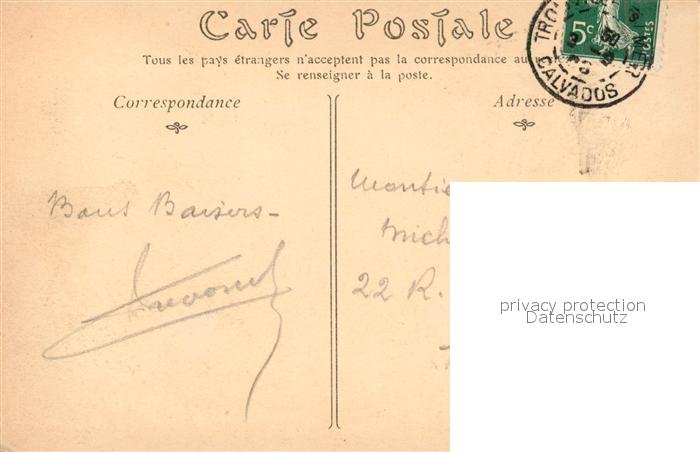 Carte Postale
Tous les pays étrangers n'acceptent pas la correspondance au
Se renseigner à la poste.
Correspondance
Adresse
5c
POSTES
CALVADOS
Bons Baisers
22 R.
privacy protection
Datenschutz